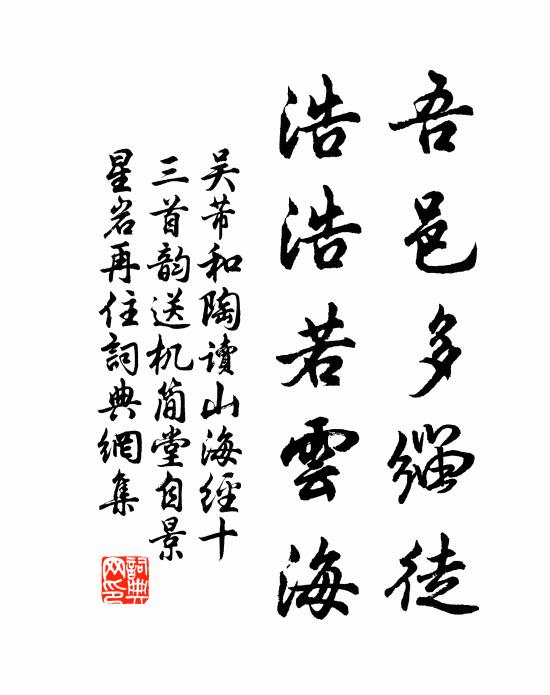 吾邑多缁徒
浩浩若雲海
吴芾和陶读山海經十
三首韵送机简堂自景
星岩再住詞典網集
詞典
网印